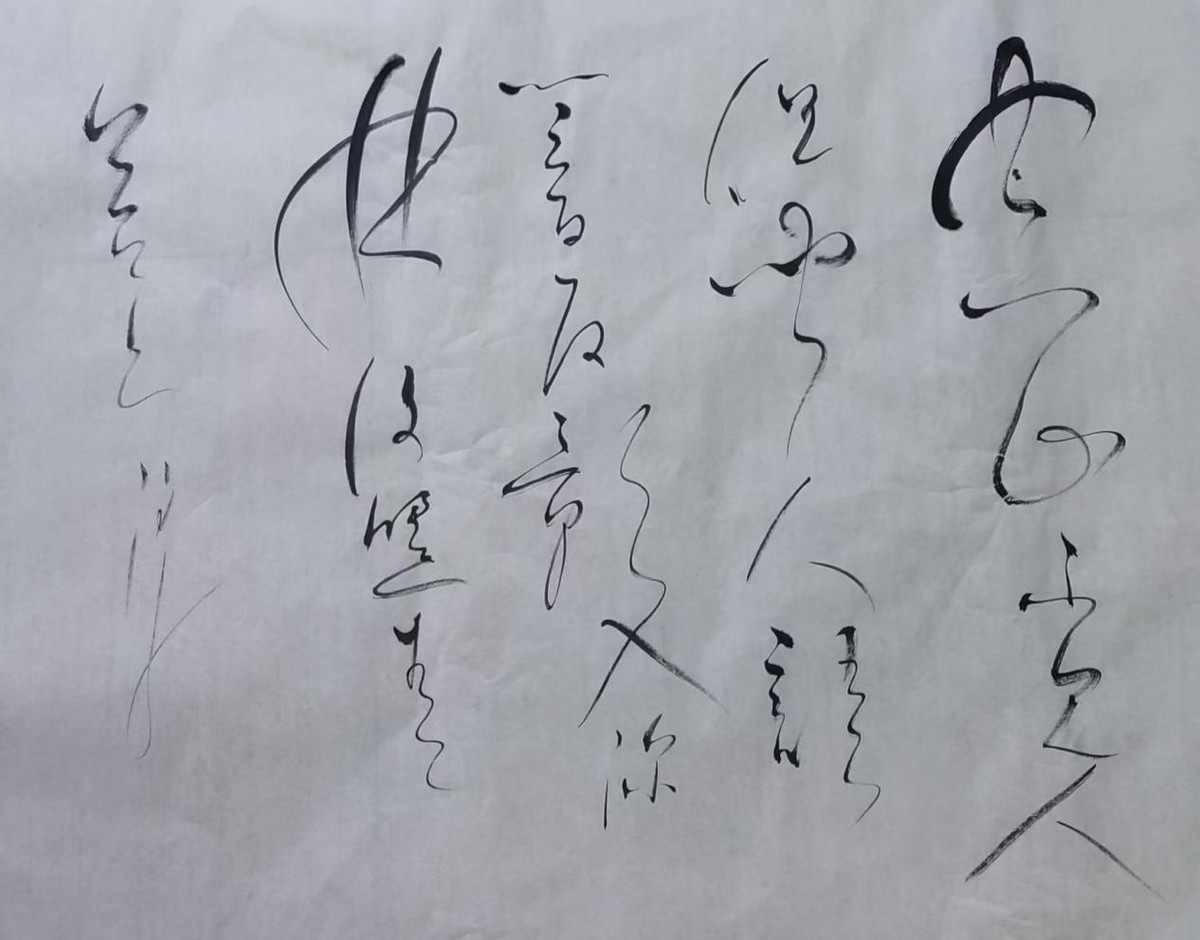 空山不見人
但聞人語
響返影入深
林復照青
苔上